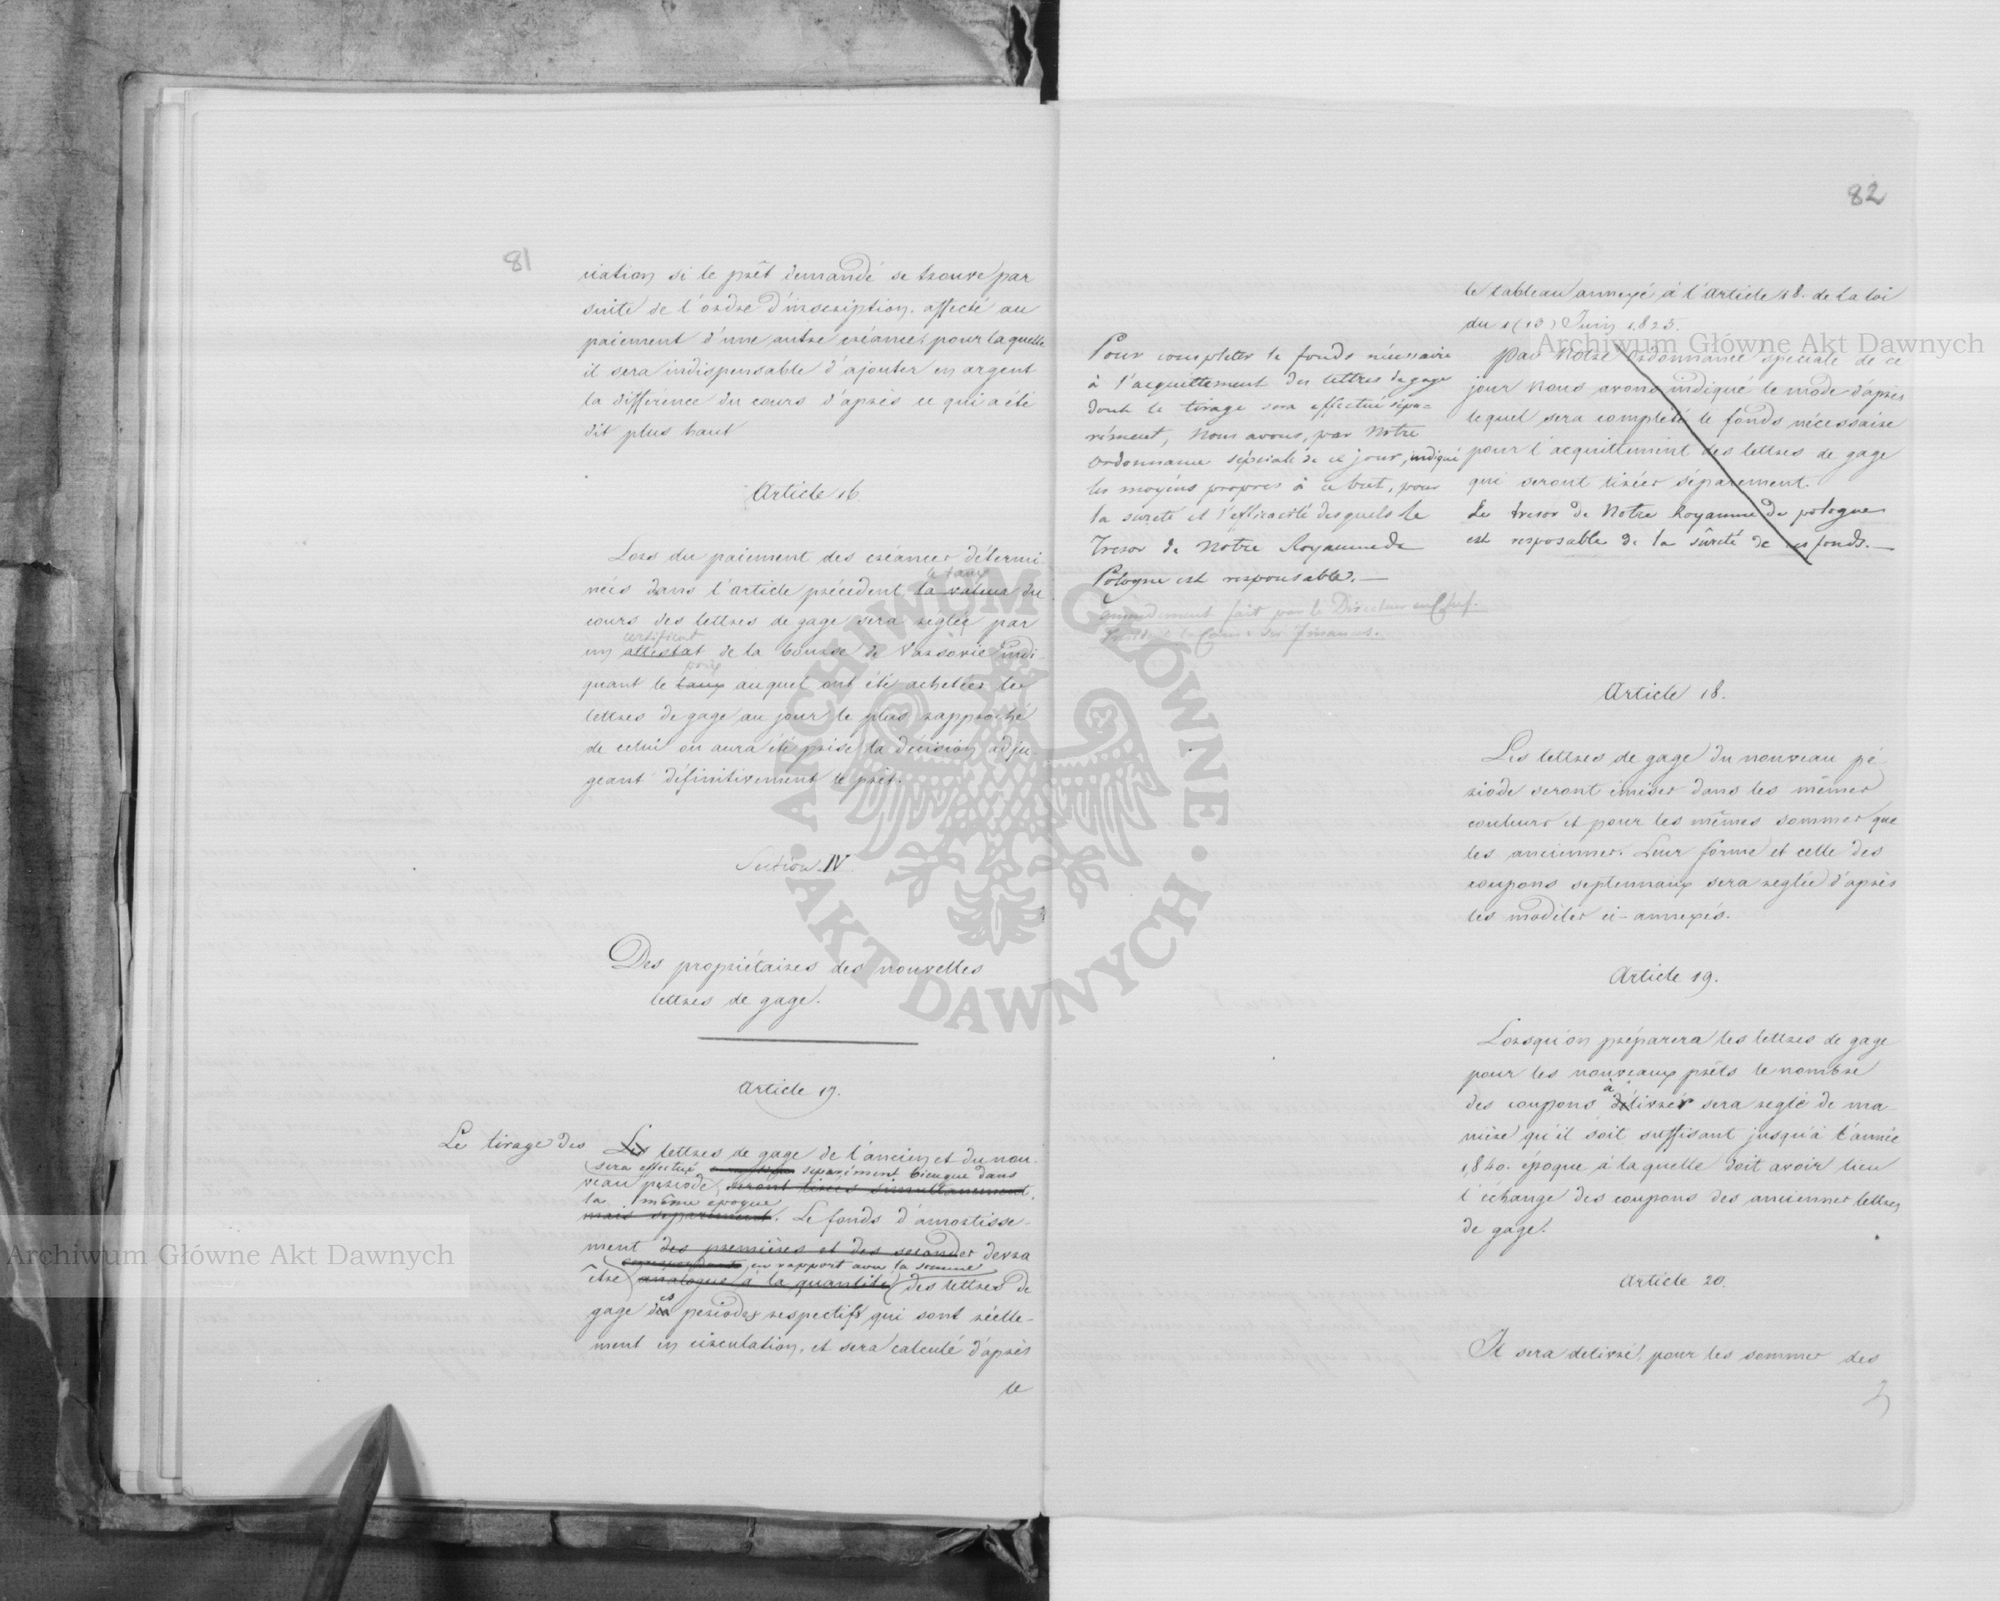 81
ciation si le prêt demandé se trouve par
suite de l'ordre d'inscription affecté au
paiement d'une autre créance, pour laquelle
il sera indispensable d'ajouter en argent
la différence du cours d'après ce qui a été
dit plus haut
Article 16.
Lors du paiement des créances détermi
le taux
nées dans l'article précédent la valeur du
cours des lettres de gage sera reglée par
certificat
un attestat de la bourse de Varsovie indi-
prix
quant le taux auquel ont été achetées les
lettres de gage au jour le plus rapproché
de celui où aura été prise la décision adju
geant définitivement le prêt.
Section IV.
Des propriétaires des nouvelles
lettres de gage.
Article 17.
Le tirage des Les lettres de gage de l'ancien et du nou-
sera effectué séparément bienque dans
veau periode, seront tirées simultanement
la même époque
mais separement. Le fonds d'amortisse-
ment des premières et des secondes devra
correspondante en rapport avec la somme
être analogue à la quantité des lettres de
es
gage des periodes respectifs qui sont réelle-
ment en circulation, et sera calculé d'après
le
82
le tableau annexé à l'Article 18. de la loi
du 1 (13) Juin 1825.
Par Notre Ordonnance spéciale de ce
jour Nous avons indiqué le mode d'après
lequel sera complété le fonds nécessaire
pour l'acquittement des lettres de gage
qui seront tirées séparement.
Le tresor de Notre Royaume de pologne
est resposable de la sûreté de ces fonds.—
Pour completer le fonds nécessaire
à l'acquittement des lettres de gage
dont le tirage sera effectué sépa=
rément, Nous avons, par Notre
Ordonnance spéciale de ce jour, indiqué
les moyens propres à ce but, pour
la sureté et l'efficacité desquels le
Tresor de Notre Royaume de
Pologne est responsable.—
amendement fait par le Directeur en Chef.
Président la Comm. des Finances.
Article 18.
Les lettres de gage du nouveau pé
riode seront émises dans les mêmes
couleurs et pour les mêmes sommes que
les anciennes. Leur forme et celle des
coupons septennaux sera reglée d'après
les modèles ci-annexés.
Article 19.
Lorsqu'on préparera les lettres de gage
pour les nouveaux prêts le nombre
à
des coupons délivrer sera reglé de ma-
nière qu'il soit suffisant jusqu'à l'année
1840. époque à laquelle doit avoir lieu
l'échange des coupons des anciennes lettres
de gage.
Article 20.
Il sera delivré, pour les sommes des
Archiwum Główne Akt Dawnych
Archiwum Główne Akt Dawnych
ARCHIWUM GŁÓWNE • AKT DAWNYCH •